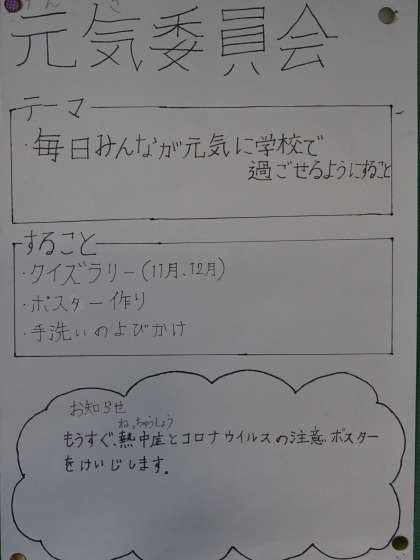 げんき
元気委員会
テーマ
・毎日みんなが元気に学校で
過ごせるようにすること
すること
・クイズラリー(11月、12月)
・ポスター作り
・手洗いのよびかけ
お知らせ
ねっちゅうしょう
もうすぐ、熱中症とコロナウイルスの注意ポスター
をけいじします。